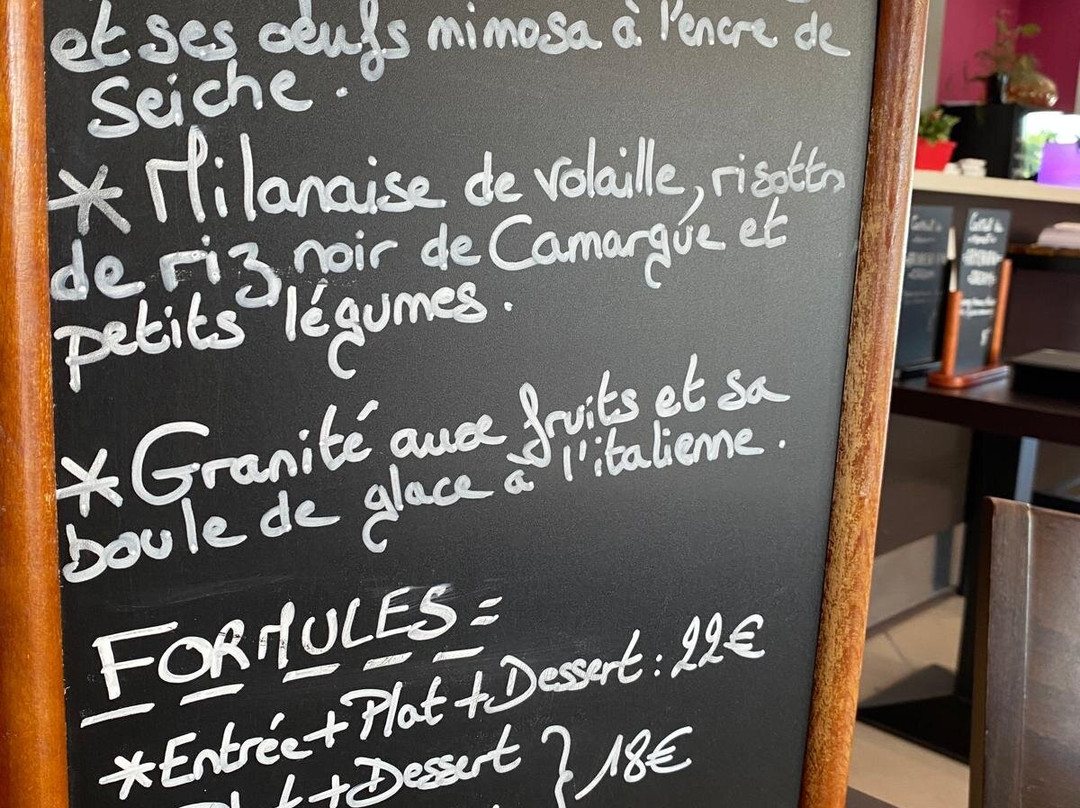 et ses oeufs mimosa à l'encre de
Seiche.
* Milanaise de volaille, risotto
de riz noir de Camargue et
petits légumes.
* Granité aux fruits et sa
boule de glace à l'italienne.
FORMULES =
* Entrée + Plat + Dessert : 22€
Plat + Dessert } 18€